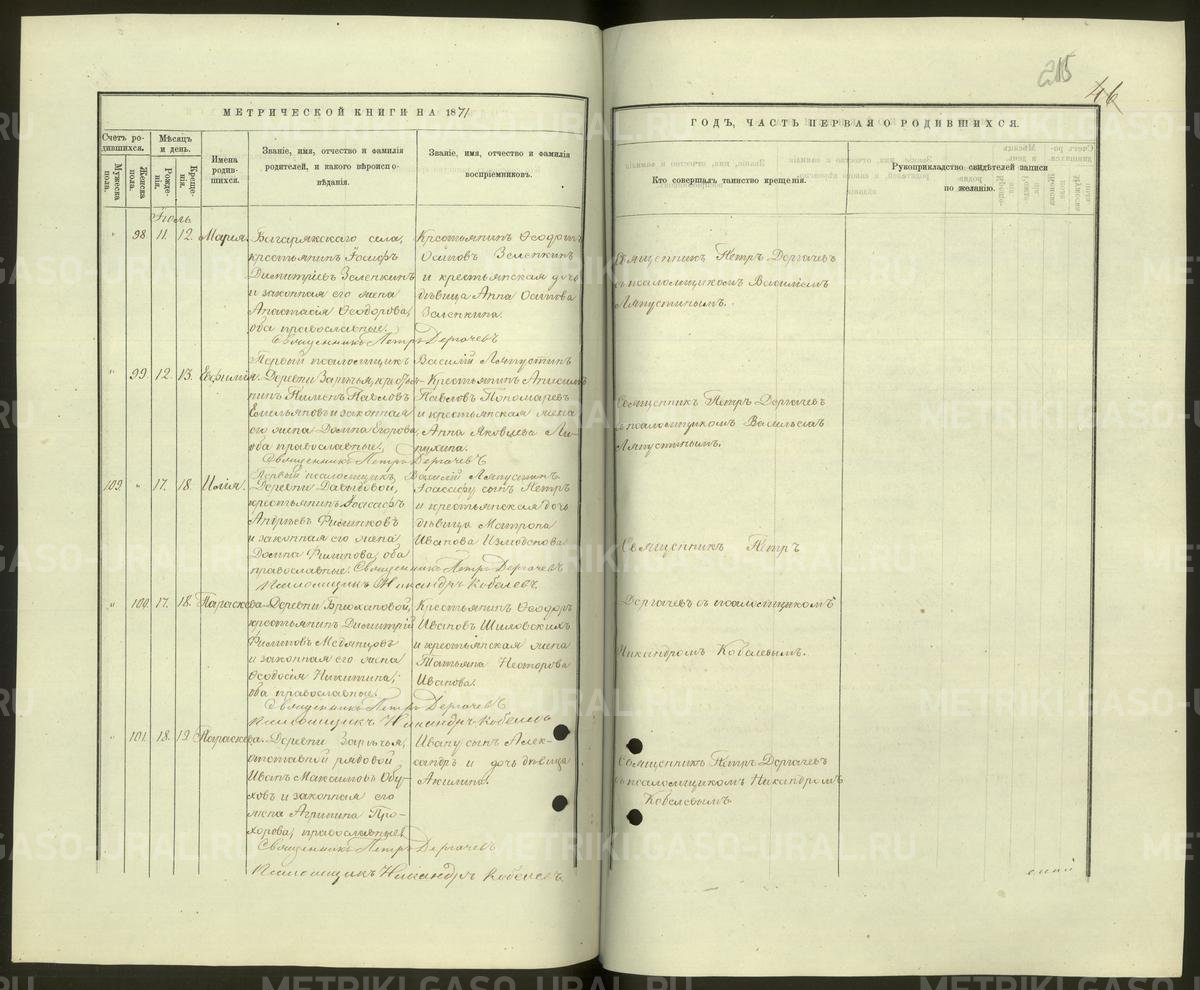 215
46
МЕТРИЧЕСКОЙ КНИГИ НА 1871
ГОДЪ, ЧАСТЬ ПЕРВАЯ О РОДИВШИХСЯ.
Счетъ родившихся.
Мужеска пола.
Женска пола.
Мѣсяцъ и день.
Рожденія.
Крещенія.
Имена родившихся.
Званіе, имя, отчество и фамилія
родителей, и какого вѣроиспо-
вѣданія.
Званіе, имя, отчество и фамилія
воспріемниковъ.
Кто совершалъ таинство крещенія.
Рукоприкладство свидѣтелей записи
по желанію.
Іюль
" 98. 11. 12. Марія. Багарякскаго села,
крестьянинъ Іосифъ
Димитріевъ Зеленкинъ
и законная его жена
Анастасія Ѳеодорова,
оба православные.
Крестьянинъ Ѳеодоръ
Осиповъ Зеленкинъ
и крестьянская дочь
дѣвица Анна Осипова
Зеленкина.
Священникъ Петръ Дергачевъ
съ псаломщикомъ Василіемъ
Ляпустинымъ.
Священникъ Петръ Дергачевъ
Первый псаломщикъ Василій Ляпустинъ
" 99. 12. 13. Евфимія. Деревни Зарѣчья, крестья-
нинъ Пименъ Павловъ
Емельяновъ и законная
его жена Домна Егорова,
оба православные.
Крестьянинъ Анисимъ
Павловъ Пономаревъ
и крестьянская жена
Анна Яковлева
Священникъ Петръ Дергачевъ
съ псаломщикомъ
Ляпустинымъ.
Священникъ Петръ Дергачевъ
Первый псаломщикъ Василій Ляпустинъ
109. " 17. 18. Илія. Деревни Давыдовой,
крестьянинъ Іоасафъ
Андреевъ
и законная его жена
Домна Филипова, оба
православные.
Іоасафу сынъ Петръ
и крестьянская дочь
дѣвица Матрона
Иванова
Священникъ Петръ
Священникъ Петръ Дергачевъ
Псаломщикъ Никандръ Кобелевъ
" 100. 17. 18. Параскева. Деревни Брюхановой,
крестьянинъ Димитрій
Филиповъ Медянцовъ
и законная его жена
Ѳеодосія Никитина,
оба православные.
Крестьянинъ Ѳеодоръ
Ивановъ Шиловскихъ
и крестьянская жена
Татьяна Несторова
Иванова.
Дергачевъ съ псаломщикомъ
Никандромъ Кобелевымъ.
Священникъ Петръ Дергачевъ
Псаломщикъ Никандръ Кобелевъ
" 101. 18. 19. Параскева. Деревни Зарѣчья,
отставной рядовой
Иванъ Максимовъ Обу-
ховъ и законная его
жена Агрипина Про-
хорова, православные.
Ивану сынъ Алек-
сандръ и дочь дѣвица
Акилина.
Священникъ Петръ Дергачевъ
съ псаломщикомъ Никандромъ
Кобелевымъ
Священникъ Петръ Дергачевъ
Псаломщикъ Никандръ Кобелевъ
METRIKI.GASO-URAL.RU